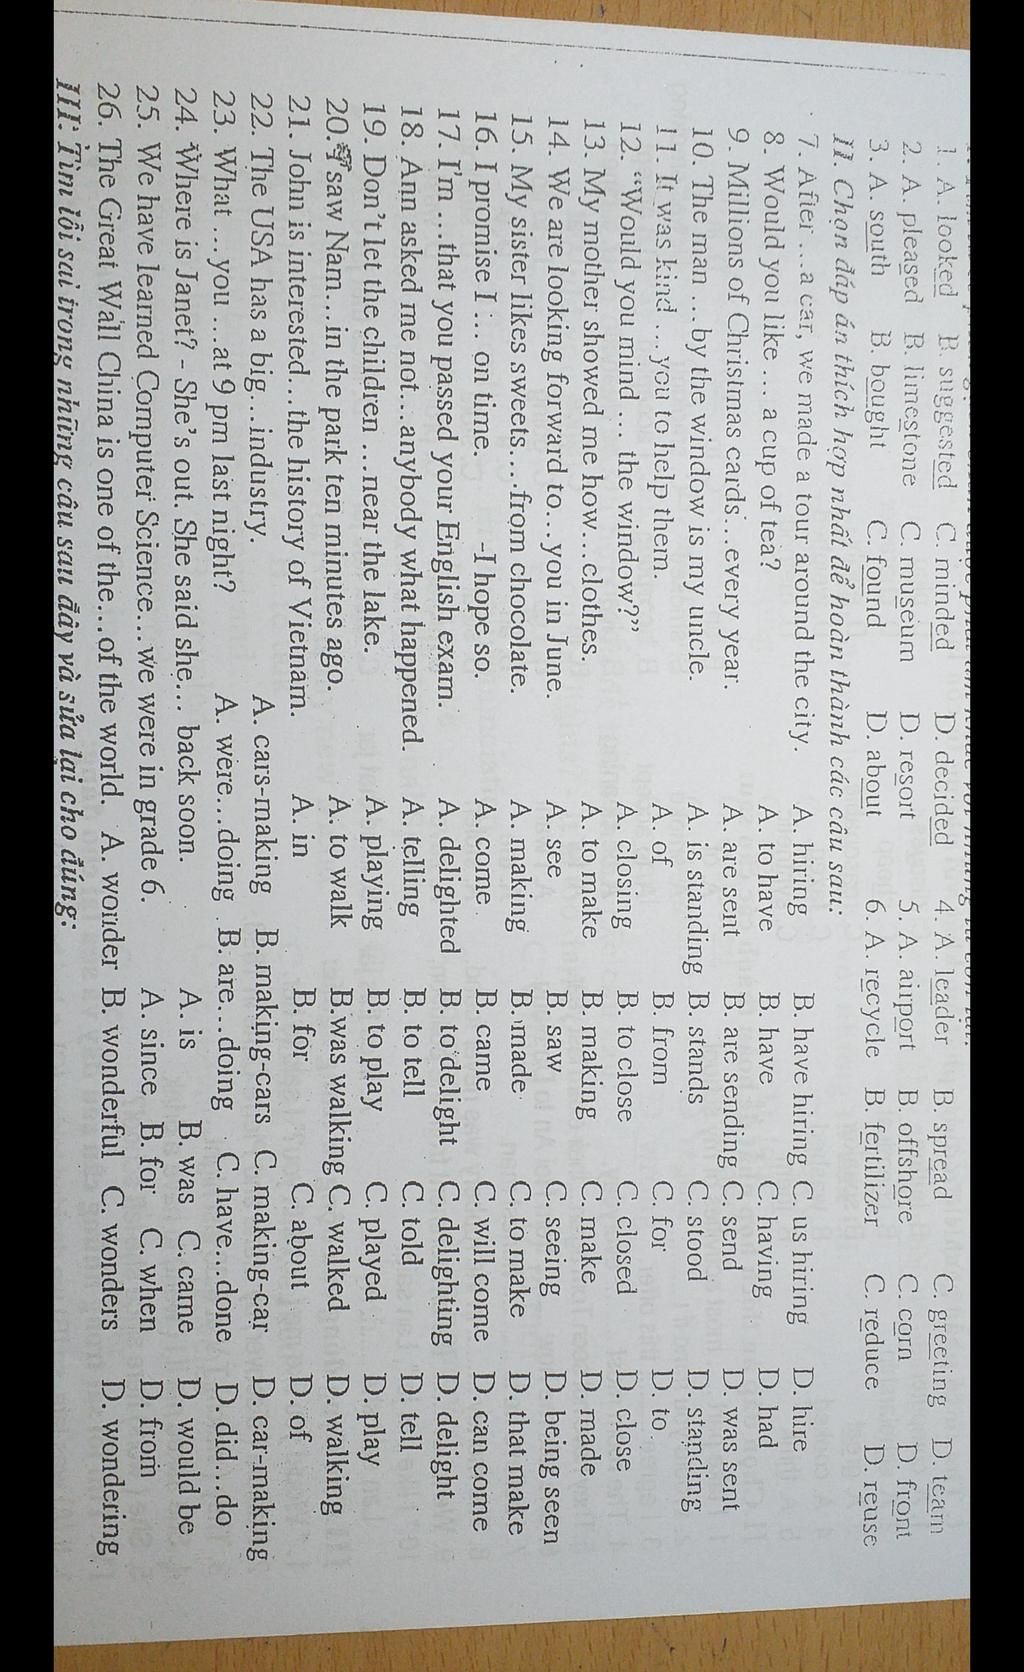 1. A. looked B. suggested C. minded D. decided 4. A. leader B. spread C. greeting D. team
2. A. pleased B. limestone C. museum D. resort 5. A. airport B. offshore C. corn D. front
3. A. south B. bought C. found D. about 6. A. recycle B. fertilizer C. reduce D. reuse
II. Chọn đáp án thích hợp nhất để hoàn thành các câu sau:
7. After ...a car, we made a tour around the city. A. hiring B. have hiring C. us hiring D. hire
8. Would you like ... a cup of tea? A. to have B. have C. having D. had
9. Millions of Christmas cards...every year. A. are sent B. are sending C. send D. was sent
10. The man ... by the window is my uncle. A. is standing B. stands C. stood D. standing
11. It was kind ...you to help them. A. of B. from C. for D. to
12. "Would you mind ... the window?" A. closing B. to close C. closed D. close
13. My mother showed me how...clothes. A. to make B. making C. make D. made
14. We are looking forward to...you in June. A. see B. saw C. seeing D. being seen
15. My sister likes sweets....from chocolate. A. making B. made C. to make D. that make
16. I promise I ... on time. -I hope so. A. come B. came C. will come D. can come
17. I'm ...that you passed your English exam. A. delighted B. to delight C. delighting D. delight
18. Ann asked me not...anybody what happened. A. telling B. to tell C. told D. tell
19. Don't let the children ...near the lake. A. playing B. to play C. played D. play
20. saw Nam... in the park ten minutes ago. A. to walk B.was walking C. walked D. walking
21. John is interested...the history of Vietnam. A. in B. for C. about D. of
22. The USA has a big ...industry. A. cars-making B. making-cars C. making-car D. car-making
23. What ...you ...at 9 pm last night? A. were...doing B. are...doing C. have...done D. did...do
24. Where is Janet? - She's out. She said she... back soon. A. is B. was C. came D. would be
25. We have learned Computer Science... we were in grade 6. A. since B. for C. when D. from
26. The Great Wall China is one of the...of the world. A. wonder B. wonderful C. wonders D. wondering
III: Tìm lỗi sai trong những câu sau đây và sửa lại cho đúng: